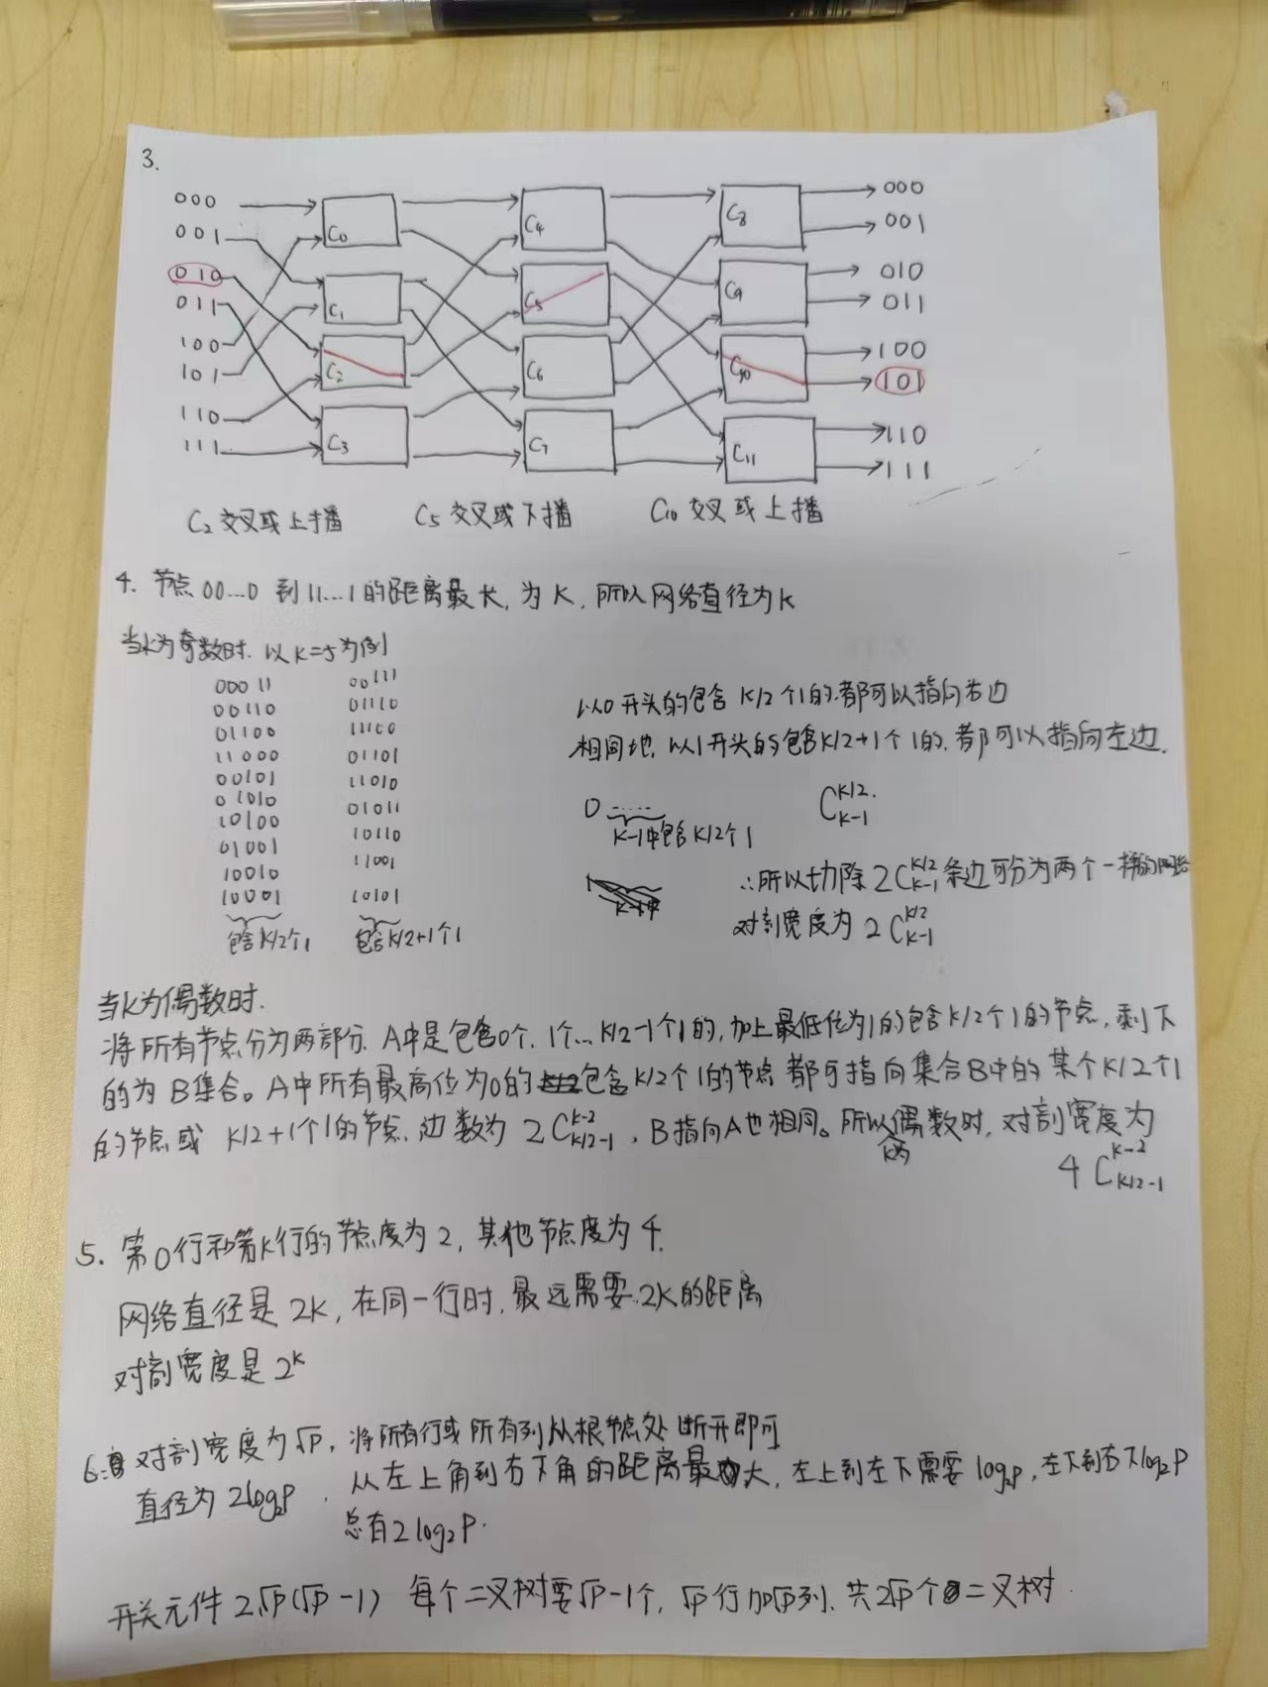 3.
000 C0 C4 C8 000
001 001
010 C1 C5 C9 010
011 011
100 C2 C6 C10 100
101 101
110 C3 C7 C11 110
111 111
C2 交叉或上播 C5 交叉或下播 C10 交叉或上播
4. 节点 00...0 到 11...1 的距离最长, 为 K, 所以网络直径为 K
当K为奇数时. 以 K=5 为例
00011 00111
00110 01110
01100 11100
11000 01101
00101 11010
01010 01011
10100 10110
01001 11001
10010
10001 10101
包含 K/2个1 包含K/2+1个1
以0开头的包含 K/2个1的.都可以指向右边
相同地. 以1开头的包含K/2+1个1的. 都可以指向左边.
0 ..... C_{K-1}^{K/2}.
K-1中包含K/2个1
∴所以切除 2C_{K-1}^{K/2} 条边可分为两个一样的网络
对剖宽度为 2C_{K-1}^{K/2}
当K为偶数时.
将所有节点分为两部分. A中是包含0个. 1个... K/2-1个1的, 加上最低位为1的包含 K/2个1的节点, 剩下
的为 B集合。A中所有最高位为0的包含 K/2个1的节点 都可指向集合B中的某个K/2个1
的节点或 K/2+1个1的节点. 边数为 2C_{K/2-1}^{K-2}, B指向A也相同。所以K为偶数时, 对剖宽度为
4C_{K/2-1}^{K-2}
5. 第0行和第K行的节点度为2, 其他节点度为4.
网络直径是 2K, 在同一行时, 最远需要 2K的距离
对剖宽度是 2^K
6. 对剖宽度为√P, 将所有行或所有列从根节点处断开即可
直径为 2log₂P. 从左上角到右下角的距离最大, 左上到左下需要 log₂P, 左下到右下log₂P
总有2log₂P.
开关元件 2√P(√P-1) 每个二叉树要√P-1个, √P行加√P列. 共2√P个二叉树.